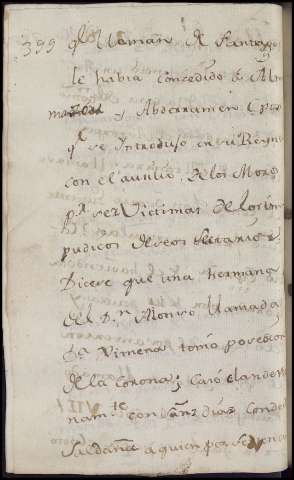 399 ql llaman de Santiago
le havia concedido a Al
manzor y Abderramen (pr
ql se introdujo en su Reyno
con el auxilio de los Moros
pa ser Victimas de los im
pudicos deseos
Dicese que una hermana
del Dn Alonso llamada
Da Ximena tomó posesion
de la Corona; Casó clandesti
namte con Sanz Diaz Conde
Saldaña a quien por